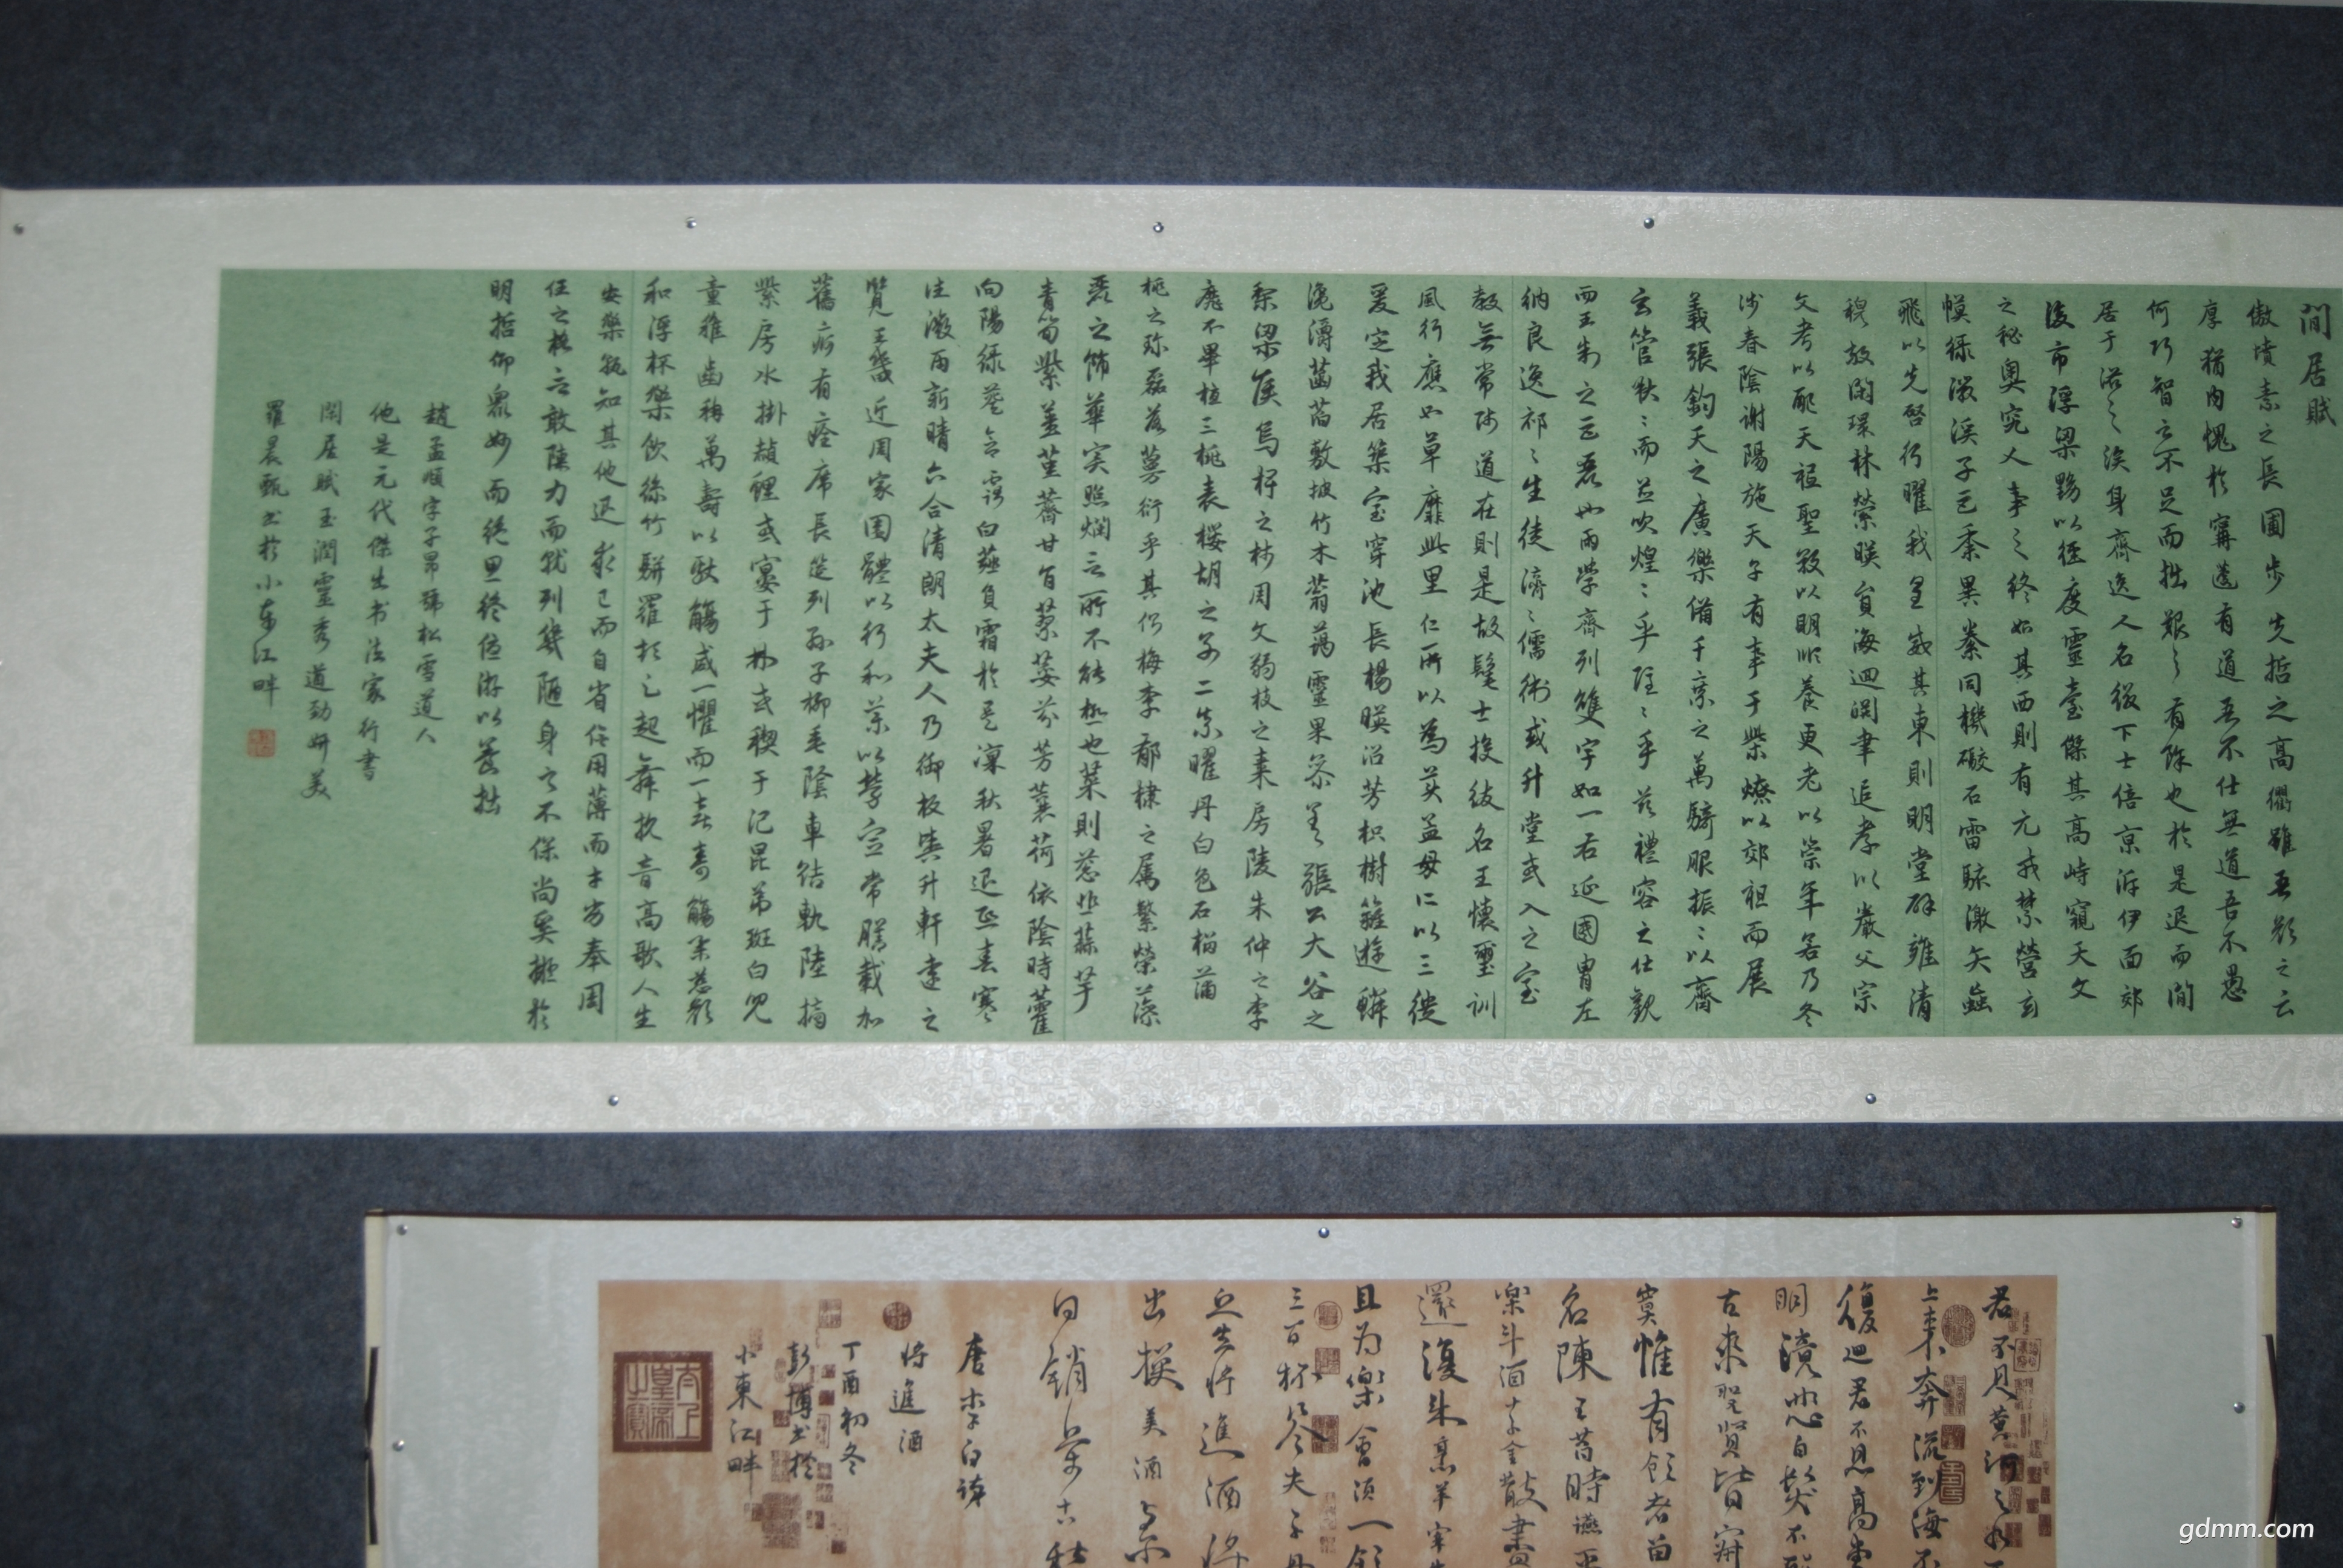 閒居賦
傲墳素之長圃步先哲之高衢雖吾顏之云
厚猶內愧於寗蘧有道吾不仕無道吾不愚
何巧智之不足而拙艱之有餘也於是退而閒
居于洛之涘身齊逸人名綴下士倍京泝伊面郊
後市浮梁黝以徑度靈臺傑其高峙窺天文
之秘奥究人事之終始其西則有元戎禁營玄
幙緑徽溪子巨黍異絭同機礮石雷駭激矢蝱
飛以先啓行曜我皇威其東則明堂辟雝清
穆敞閑環林縈暎圓海廻淵聿追孝以嚴父宗
文考以配天祗聖敬以明順養更老以崇年若乃冬
涉春陰謝陽施天子有事于柴燎以郊祖而展
義張鈞天之廣樂備千乘之萬騎服振振以齊
玄管啾啾而並吹煌煌乎隱隱乎茲禮容之壯觀
而王制之巨麗也兩學齊列雙宇如一右延國胄左
納良逸祁祁生徒濟濟儒術或升堂或入之室
教無常師道在則是故髦士投紱名王懷璽訓
風行應如草靡此里仁所以為美孟母所以三徙
爰定我居築室穿池長楊暎沼芳枳樹籬遊鱗
瀺灂菡萏敷披竹木蓊藹靈果參差張公大谷之
梨梁侯烏椑之柿周文弱枝之棗房陵朱仲之李
靡不畢植三桃表櫻胡之別二柰曜丹白色石榴蒲
桃之珍磊落蔓衍乎其側梅李郁棣之屬繁榮藻
麗之飾華实照爛言所不能極也菜則葱韭蒜芋
青筍紫薑堇薺甘旨蓼荽芬芳蘘荷依陰時藿
向陽緑葵含露白薤負霜於是凜秋暑退熙春寒
往微雨新晴六合清朗太夫人乃御板輿升軒遠
覽王畿近周家園體以行和藥以勞宣常膳載加
舊痾有痊席長筵列孫子柳垂陰車結軌陸摘
紫房水掛赬鯉或宴于林或禊于汜昆弟斑白兒
童稚齒稱萬壽以獻觴咸一懼而一喜壽觴舉慈顏
和浮杯樂飲絲竹駢羅頓足起舞抗音高歌人生
安樂孰知其他退求己而自省信用薄而才劣奉周
任之格言敢陳力而就列幾陋身之不保尚奚擬於
明哲仰衆妙而絕思終優游以養拙
趙孟順字子昂號松雪道人
他是元代傑出书法家行書
閑居賦玉潤靈秀道勁妍美
羅晨甄书於小东江畔
君不見黄河之水
上来奔流到海不
復廻君不見高堂
明鏡悲白髮
古來聖賢皆寂
寞惟有飲者留
名陳王昔時讌平
樂斗酒十千
還復来烹羊宰牛
且為樂會須一飲
三百杯岑夫子丹
丘生將進酒
出換美酒与尔
同銷萬古愁
唐李白詩
將進酒
丁酉初冬
彭博书於
小東江畔
太上皇帝之寶
gdmm.com